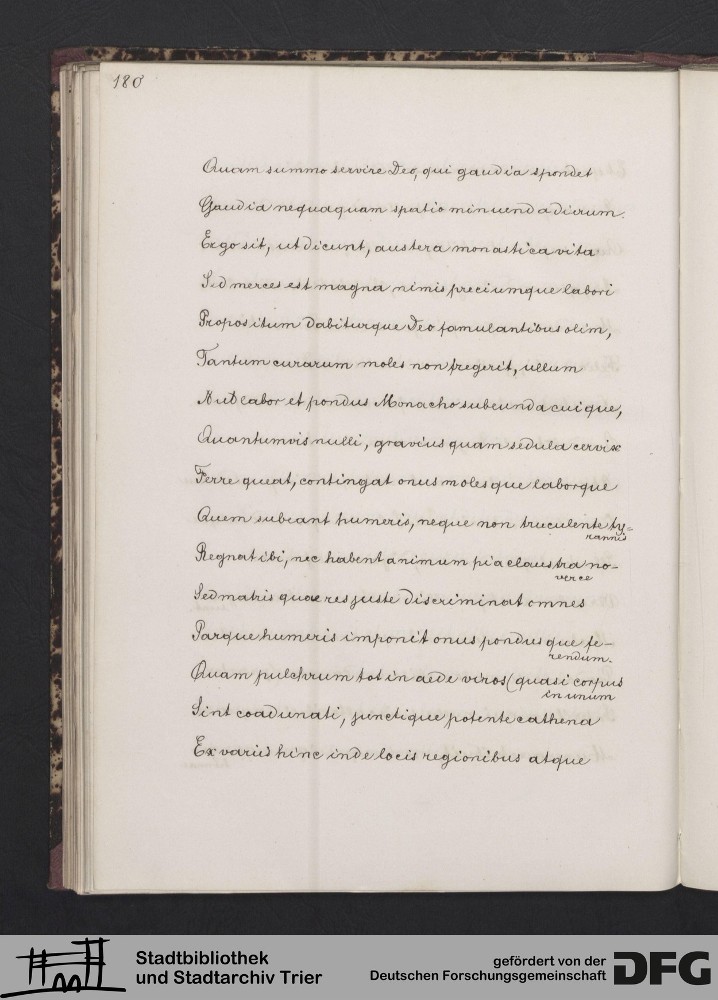 180
Quam summo servire Deo, qui gaudia spondet
Gaudia nequaquam spatio minuenda dierum.
Ergo sit, ut dicunt, austera monastica vita
Sed merces est magna nimis preciumque labori
Propositum dabiturque Deo famulantibus olim,
Tantum curarum moles non fregerit, ullum
Aut labor et pondus Monacho subeunda cuique,
Quantumvis nulli, gravius quam sedula cervix
Ferre queat, contingat onus molesque laborque
Quem subeant humeris, neque non truculente ty=
rannis
Regnat ibi, nec habent animum pia claustra no-
verce
Sed matris quae res juste discriminat omnes
Parque humeris imponit onus pondusque fe-
rendum.
Quam pulchrum tot in aede viros (quasi corpus
in unum
Sint coadunati, junctique potente cathena
Ex variis hinc inde locis regionibus atque
Stadtbibliothek
und Stadtarchiv Trier
gefördert von der
Deutschen Forschungsgemeinschaft
DFG